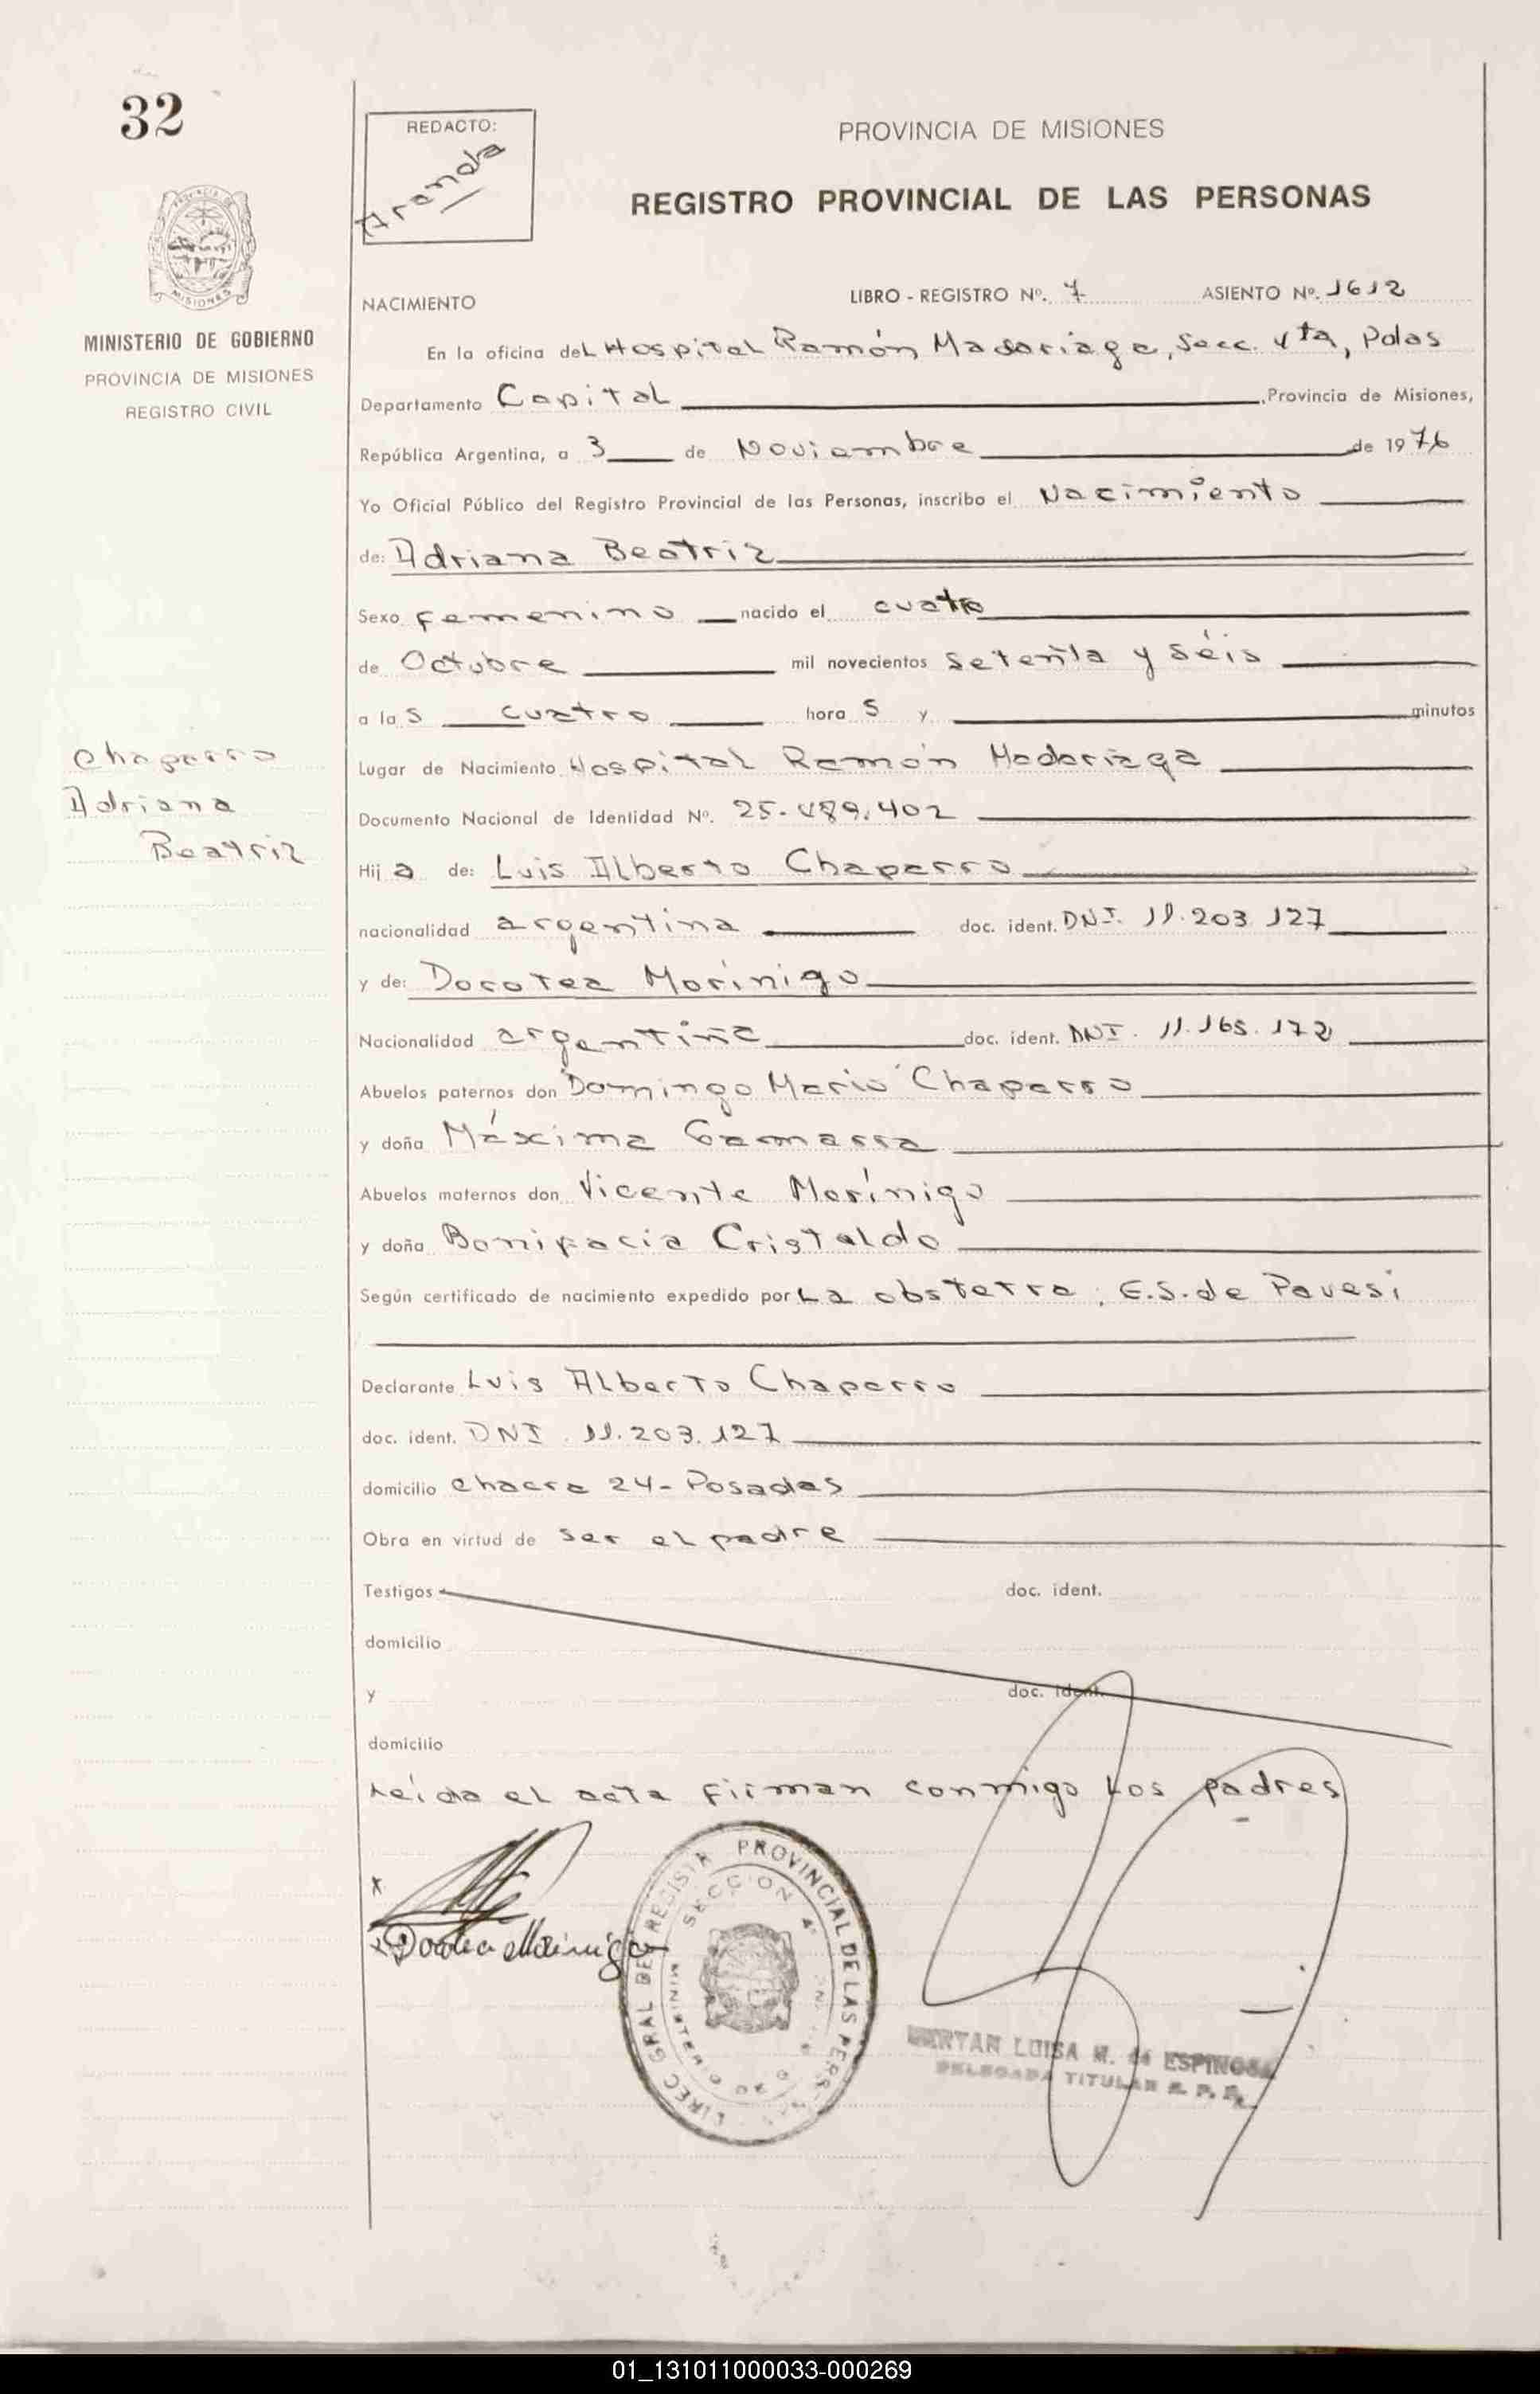 32
REDACTO:
Aranda
PROVINCIA DE MISIONES
REGISTRO PROVINCIAL DE LAS PERSONAS
MISIONES
MINISTERIO DE GOBIERNO
PROVINCIA DE MISIONES
REGISTRO CIVIL
NACIMIENTO LIBRO - REGISTRO Nº. 7 ASIENTO Nº. 1612
En la oficina del Hospital Ramón Madariaga, Secc. 4ta, Pdas
Departamento Capital, Provincia de Misiones,
República Argentina, a 3 de Noviambre de 1976
Yo Oficial Público del Registro Provincial de las Personas, inscribo el Nacimiento
de: Adriana Beatriz
Sexo femenino nacido el cuatro
de Octubre mil novecientos setenta y séis
a las cuatro horas y minutos
Chaparro
Adriana
Beatriz
Lugar de Nacimiento Hospital Ramón Madariaga
Documento Nacional de Identidad Nº. 25.489.402
Hija de: Luis Alberto Chaparro
nacionalidad argentina doc. ident. DNI. 11.203.127
y de: Dorotea Morínigo
Nacionalidad argentina doc. ident. DNI. 11.165.172
Abuelos paternos don Domingo Mario Chaparro
y doña Máxima Gamarra
Abuelos maternos don Vicente Morínigo
y doña Bonifacia Cristaldo
Según certificado de nacimiento expedido por La obstetra, E.S. de Pavesi
Declarante Luis Alberto Chaparro
doc. ident. DNI. 11.203.127
domicilio chacra 24- Posadas
Obra en virtud de ser el padre
Testigos doc. ident.
domicilio
y doc. ident.
domicilio
Leída el acta firman conmigo los padres
Dorotea Morinigo
DIREC GRAL DEL REGISTR PROVINCIAL DE LAS PERSONAS
SECCION 4ª
MINISTERIO DE
LUISA M. de ESPINOSA
DELEGADA TITULAR R. P. P.
01_131011000033-000269